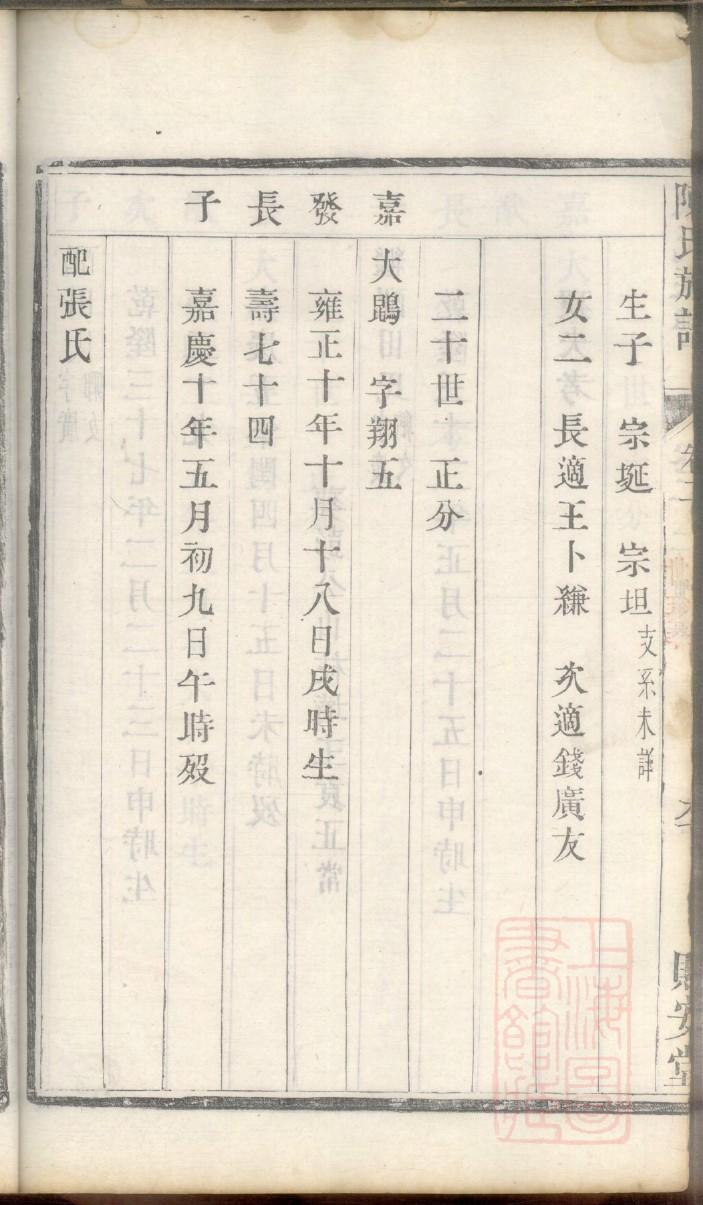 陳氏族譜
卷二
貽安堂
生子 宗埏 宗坦 支系未詳
女二 長適王卜縑 次適錢廣友
二十世 正分
嘉發長子
大鵾 字翔五
雍正十年十月十八日戌時生
壽七十四
嘉慶十年五月初九日午時歿
配張氏
上海圖書館藏